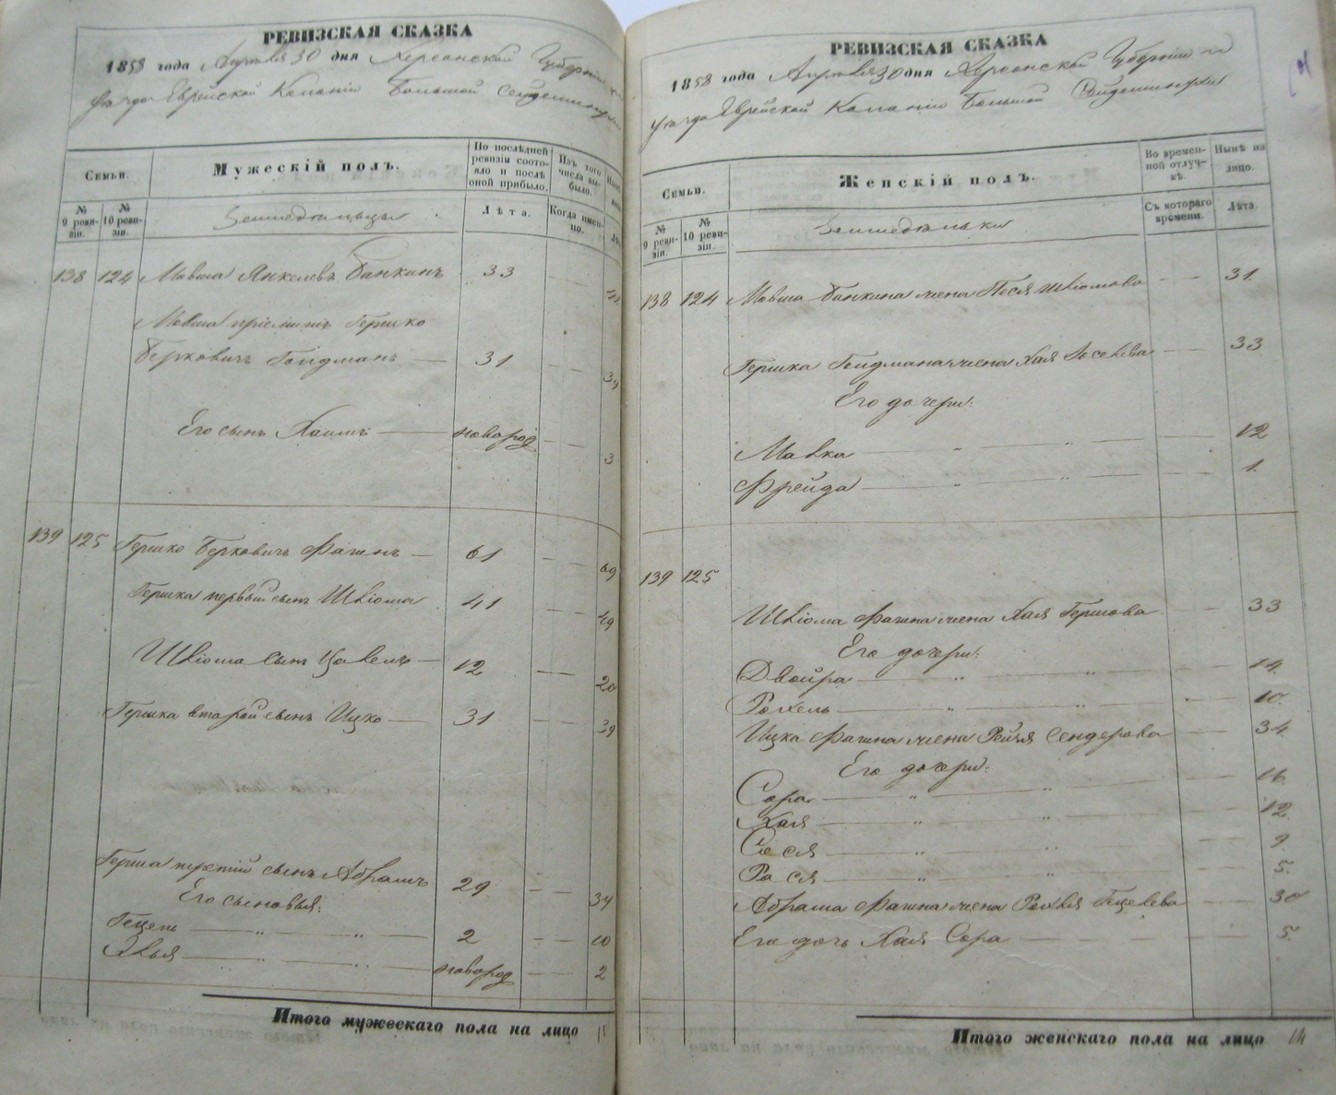 РЕВИЗСКАЯ СКАЗКА
1858 года Апреля 30 дня Херсонской Губерніи и
уезда Еврейской Колоніи Большой Сейдеминухи
Семьи.
Мужескій полъ.
По последней ревизіи состояло и послѣ оной прибыло.
Изъ того числа выбыло.
№ 9 ревизіи.
№ 10 ревизіи.
Земледельцы
Лѣта.
Когда именно.
138 124 Мовша Янкелевъ Банкинъ 33
Мовша пріемышъ Гершко
Берковичъ Гойдманъ 31 39
Его сынъ Хаимъ новород 3
139 125 Гершко Берковичъ Фагинъ 61 69
Гершка первый сынъ Шліома 41 49
Шліома сынъ 12 20
Гершка второй сынъ Ицко 31 39
Герша третій сынъ Абрамъ 29 34
Его сыновья:
Гецель 2 10
новород 2
Итого мужескаго пола на лицо
РЕВИЗСКАЯ СКАЗКА
1858 года Апреля 30 дня Херсонской Губерніи и
уезда Еврейской Колоніи Большой Сейдеминухи
Семьи.
Женскій полъ.
Во временной отлучкѣ.
Нынѣ на лицо.
№ 9 ревизіи.
№ 10 ревизіи.
Земледельки
Съ котораго времени.
Лѣта.
138 124 Мовша Банкина жена Песя Шліомова 31
Гершка Гойдмана жена Хая 33
Его дочери:
Малка 12
Фрейда 1
139 125
Шліома Фагина жена Хая Гершова 33
Его дочери:
Двойра 14
Рохель 10
Ицка Фагина жена Рейзя Сендерова 34
Его дочери:
Сора 16
Хая 12
9
Рася 5
Абрама Фагина жена Рохля Гецелева 30
Его дочь Хая Сора 5
Итого женскаго пола на лицо 14